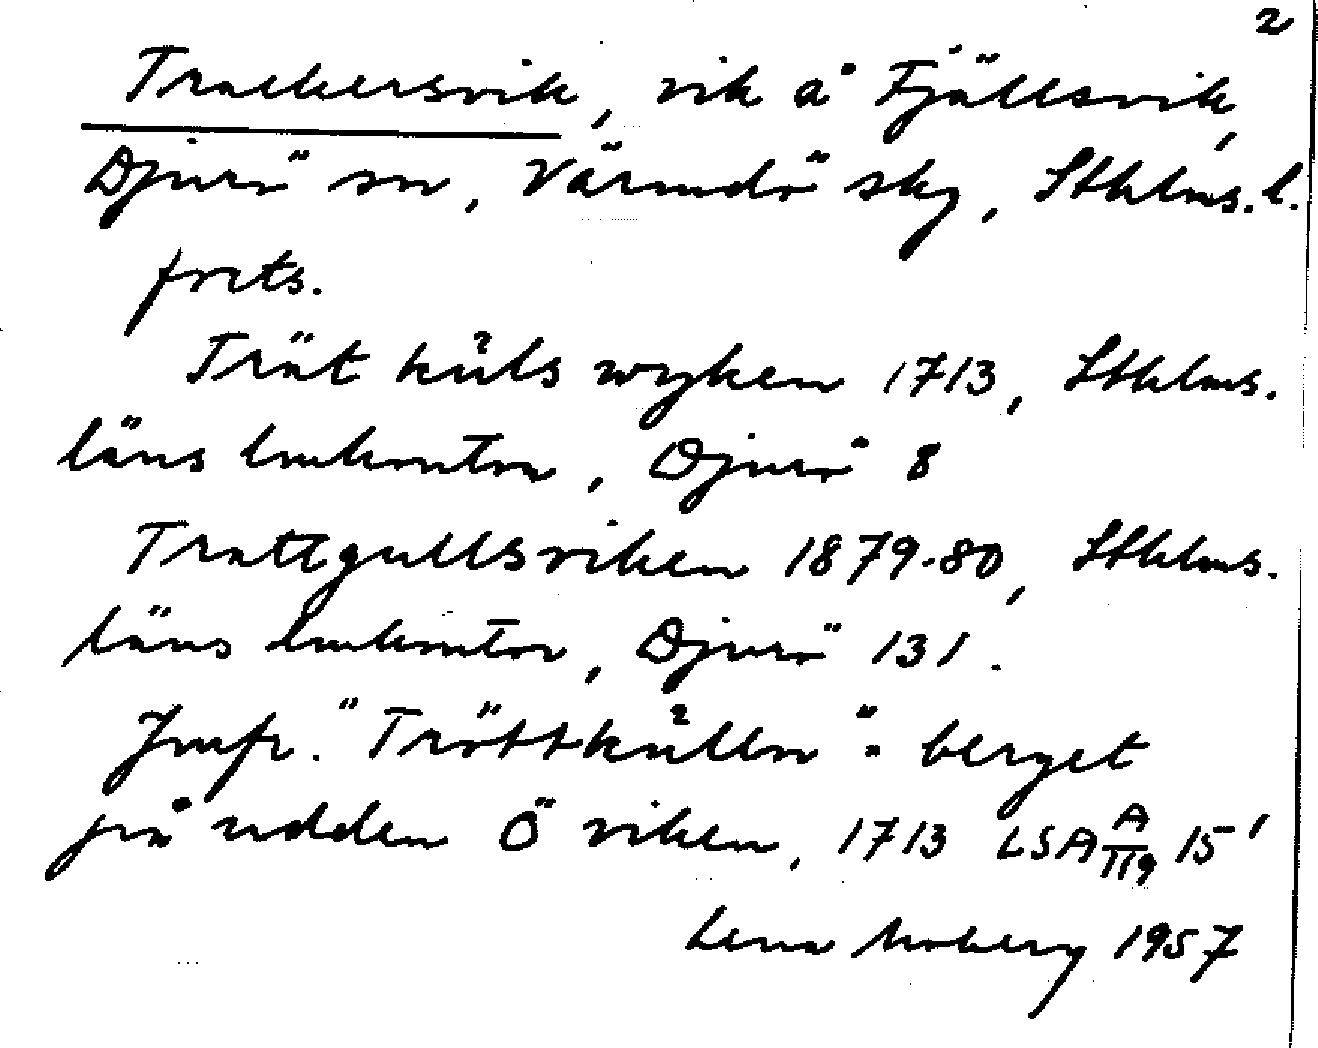 2
Trackersvik, vik å Fjällsvik,
Djurö sn, Värmdö skg, Sthlms. l.
forts.
Trät kůls wyken 1713, Sthlms.
läns lmkontor, Djurö 8
Trattgullsviken 1879-80, Sthlms.
läns lmkontor, Djurö 131.
Jmfr. "Tröttkůlln": berget
på udden Ö viken, 1713 LSA A/119 15'
Lena Moberg 1957